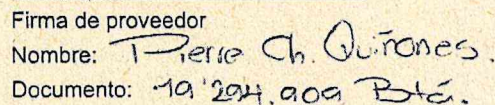 Firma de proveedor
Nombre: Pierre Ch. Quiñones.
Documento: 19'294.909 Btá.